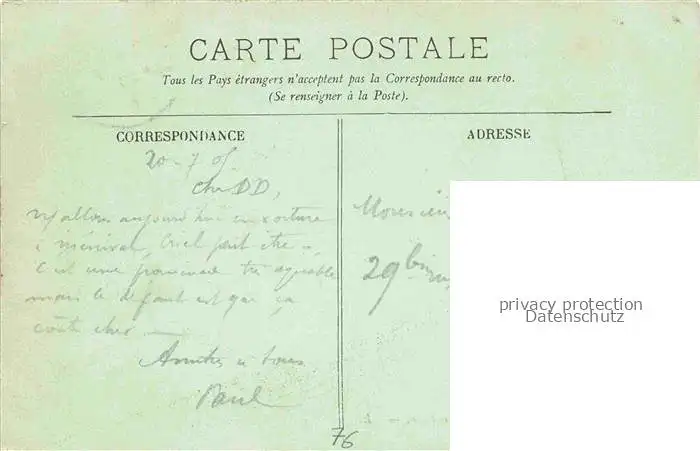 CARTE POSTALE
Tous les Pays étrangers n'acceptent pas la Correspondance au recto.
(Se renseigner à la Poste).
CORRESPONDANCE
ADRESSE
20-7 05
Cher DD,
allons aujourd'hui en voiture
à Ménival, Criel peut être
C'est une promenade très agréable
mais le défaut est que ça
coûte cher
Amitiés à tous
Paul
Monsieur
29 bis
privacy protection
Datenschutz
76